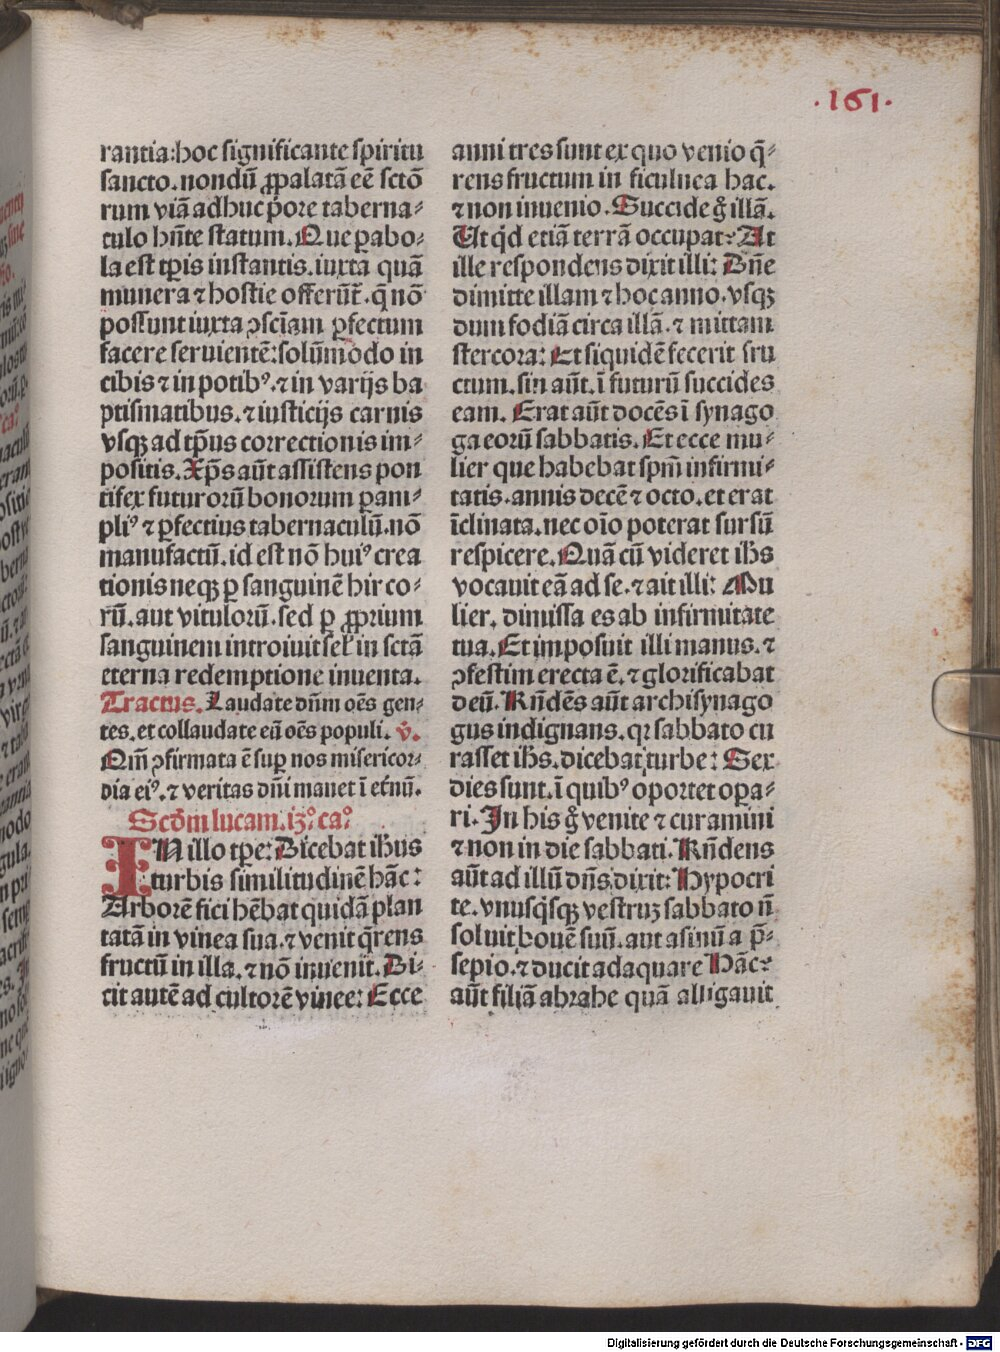 .161.
rantia:hoc significante spiritu
sancto.nondū ꝓpalatā eē sctō
rum viā adhuc pͦore taberna⸗
culo hn̄te statum.Que ꝑabo⸗
la est tp̄is instantis.iuxta quā
munera ⁊ hostie offerūt̄.q̄ nō
possunt iuxta ꝯsciam ꝑfectum
facere seruientē:solūmodo in
cibis ⁊ in potibꝰ.⁊ in varijs ba
ptismatibus.⁊ iusticijs carnis
vsqꝫ ad tp̄us correctionis im⸗
positis.Xp̄s aūt assistens pon
tifex futurorū bonorum ꝑ am⸗
pliꝰ ⁊ ꝑfectius tabernaculū.nō
manufactū.id est nō huiꝰ crea
tionis neqꝫ ꝑ sanguinē hirco⸗
rū.aut vitulorū.sed ꝑ ꝓprium
sanguinem introiuit sel̄ in sctā
eterna redemptione inuenta.
Tractus.Laudate dn̄m oēs gen⸗
tes.et collaudate eū oēs populi. v̄.
Qm̄ ꝯfirmata ē suꝑ nos misericor⸗
dia eiꝰ.⁊ veritas dn̄i manet ī et̄nū.
Scdm̄ lucam.iꝫ.caꝰ
IN illo tꝑe:Dicebat ihūs
turbis similitudinē hāc:
Arborē fici hēbat quidā plan
tatā in vinea sua.⁊ venit q̄rens
fructū in illa.⁊ nō inuenit.Di⸗
cit autē ad cultorē vinee:Ecce
anni tres sunt ex quo venio q̄⸗
rens fructum in ficulnea hac.
⁊ non inuenio.Succide g̊ illā.
Ut qd̄ etiā terrā occupat:At
ille respondens dixit illi:Dn̄e
dimitte illam ⁊ hoc anno.vsqꝫ
dum fodiā circa illā.⁊ mittam
stercora:Et siquidē fecerit fru
ctum.sin aūt.ī futurū succides
eam.Erat aūt docēs ī synago
ga eorū sabbatis.Et ecce mu⸗
lier que habebat spm̄ infirmi⸗
tatis.annis decē ⁊ octo.et erat
īclinata.nec oīo poterat sursū
respicere.Quā cū videret ihs̄
vocauit eā ad se.⁊ ait illi:Mu
lier. dimissa es ab infirmitate
tua.Et imposuit illi manus.⁊
ꝯfestim erecta ē.⁊ glorificabat
deū.Rn̄dēs aūt archisynago
gus indignans.qꝛ sabbato cu
rasset ihs̄.dicebat turbe:Sex
dies sunt.ī quibꝰ oportet oꝑa⸗
ri.In his g̊ venite ⁊ curamini
⁊ non in die sabbati.Rn̄dens
aūt ad illū dn̄s.dixit:Hypocri
te.vnusq̄sqꝫ vestruꝫ sabbato n̄
soluit bouē suū.aut asinū a p̄⸗
sepio.⁊ ducit adaquare:Hāc
aūt filiā abrahe quā alligauit
Digitalisierung gefördert durch die Deutsche Forschungsgemeinschaft - DFG